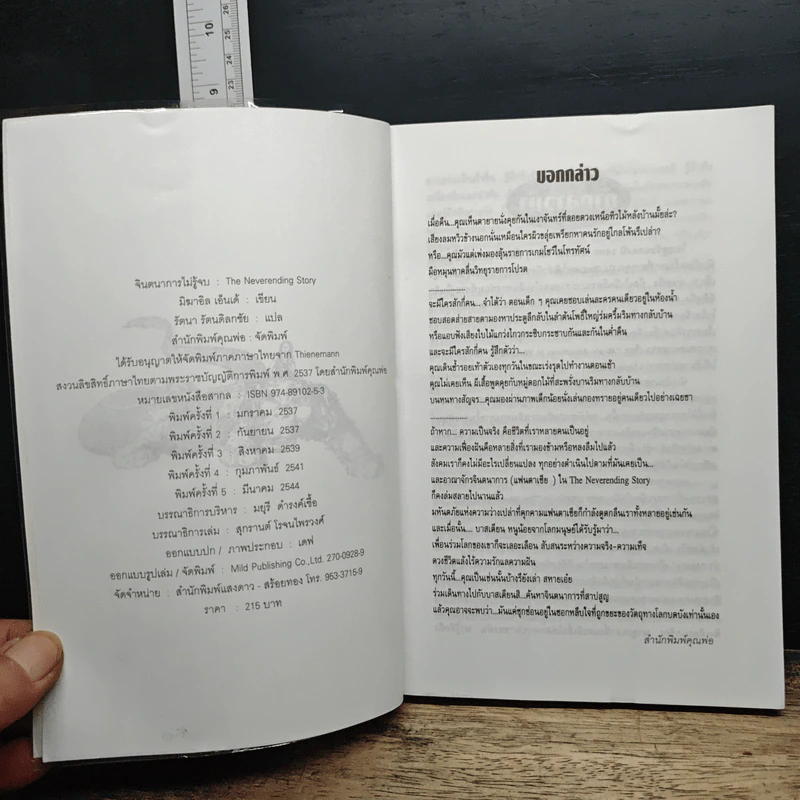 10
9
25
24
23
จินตนาการไม่รู้จบ : The Neverending Story
มิฆาอิล เอ็นเด้ : เขียน
รัตนา รัตนดิลกชัย : แปล
สำนักพิมพ์คุณพ่อ : จัดพิมพ์
ได้รับอนุญาตให้จัดพิมพ์ภาคภาษาไทยจาก Thienemann
สงวนลิขสิทธิ์ภาษาไทยตามพระราชบัญญัติการพิมพ์ พ.ศ. 2537 โดยสำนักพิมพ์คุณพ่อ
หมายเลขหนังสือสากล : ISBN 974-89102-5-3
พิมพ์ครั้งที่ 1 : มกราคม 2537
พิมพ์ครั้งที่ 2 : กันยายน 2537
พิมพ์ครั้งที่ 3 : สิงหาคม 2539
พิมพ์ครั้งที่ 4 : กุมภาพันธ์ 2541
พิมพ์ครั้งที่ 5 : มีนาคม 2544
บรรณาธิการบริหาร : มยุรี ดำรงค์เชื้อ
บรรณาธิการเล่ม : สุกรานต์ โรจนไพรวงศ์
ออกแบบปก / ภาพประกอบ : เดฟ
ออกแบบรูปเล่ม / จัดพิมพ์ : Mild Publishing Co.,Ltd. 270-0928-9
จัดจำหน่าย : สำนักพิมพ์แสงดาว - สร้อยทอง โทร. 953-3715-9
ราคา : 215 บาท
บอกกล่าว
เมื่อคืน...คุณเห็นตายายนั่งคุยกันในเงาจันทร์ที่ลอยดวงเหนือทิวไม้หลังบ้านมั้ยล่ะ?
เสียงลมหวิวข้างนอกนั่นเหมือนใครผิวขลุ่ยเพรียกหาคนรักอยู่ไกลโพ้นรึเปล่า?
หรือ...คุณมัวแต่เพ่งมองลุ้นรายการเกมโชว์ในโทรทัศน์
มือหมุนหาคลื่นวิทยุรายการโปรด
....................
จะมีใครสักกี่คน... จำได้ว่า ตอนเด็ก ๆ คุณเคยชอบเล่นละครคนเดียวอยู่ในห้องน้ำ
ชอบสอดส่ายสายตามองหาประตูลึกลับในลำต้นโพธิ์ใหญ่ร่มครึ้มริมทางกลับบ้าน
หรือแอบฟังเสียงใบไม้แกว่งไกวกระซิบกระซาบกันและกันในค่ำคืน
และจะมีใครสักกี่คน รู้สึกตัวว่า...
คุณเดินซ้ำรอยเท้าตัวเองทุกวันในขณะเร่งรุดไปทำงานตอนเช้า
คุณไม่เคยเห็น ผีเสื้อพูดคุยกับหมู่ดอกไม้ที่สะพรั่งบานริมทางกลับบ้าน
บนหนทางสัญจร...คุณมองผ่านภาพเด็กน้อยนั่งเล่นกองทรายอยู่คนเดียวไปอย่างเฉยชา
....................
ถ้าหาก... ความเป็นจริง คือชีวิตที่เราหลายคนเป็นอยู่
และความเฟื่องฝันคือหลายสิ่งที่เรามองข้ามหรือหลงลืมไปแล้ว
สังคมเราก็คงไม่มีอะไรเปลี่ยนแปลง ทุกอย่างดำเนินไปตามที่มันเคยเป็น...
และอาณาจักรจินตนาการ (แฟนตาเซีย ) ใน The Neverending Story
ก็คงล่มสลายไปนานแล้ว
มหันตภัยแห่งความว่างเปล่าที่คุกคามแฟนตาเซียก็กำลังดูดกลืนเราทั้งหลายอยู่เช่นกัน
และเมื่อนั้น.... บาสเตียน หนูน้อยจากโลกมนุษย์ได้รับรู้มาว่า...
เพื่อนร่วมโลกของเขาก็จะเลอะเลือน สับสนระหว่างความจริง-ความเท็จ
ดวงชีวิตแล้งไร้ความรักแลความฝัน
ทุกวันนี้...คุณเป็นเช่นนั้นบ้างรึยังเล่า สหายเอ๋ย
ร่วมเดินทางไปกับบาสเตียนสิ...ค้นหาจินตนาการที่สาปสูญ
แล้วคุณอาจจะพบว่า...มันแค่ซุกซ่อนอยู่ในซอกหลืบใจที่ถูกขยะของวัตถุทางโลกบดบังเท่านั้นเอง
สำนักพิมพ์คุณพ่อ